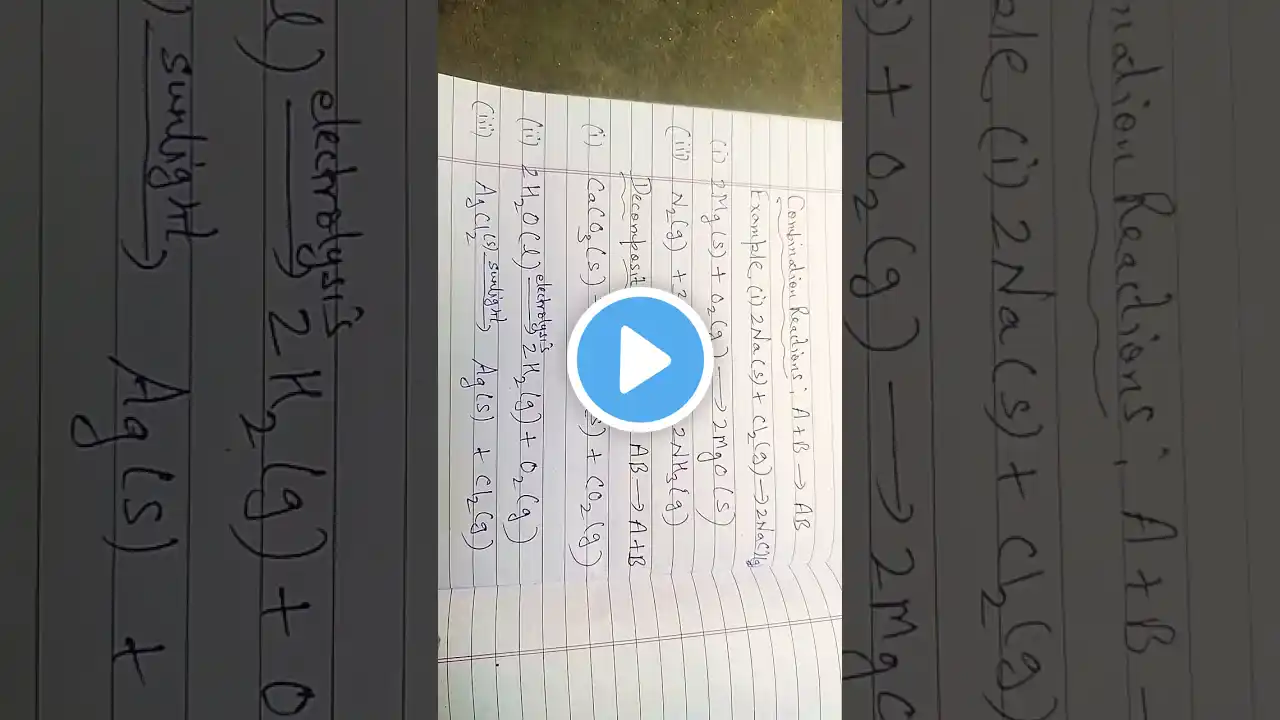 Combination Reactions; A+B → AB
Example, (i) 2Na(s) + Cl₂(g) → 2NaCl(g
(i) 2Mg(s) + O₂(g) → 2MgO(s)
(iii) N₂(g) + 2NH₃(g)
Decomposit AB → A+B
(i) CaCO₃(s) s) + CO₂(g)
(ii) 2H₂O(l) electrolysis→ 2H₂(g) + O₂(g)
(iii) AgCl₂(s) sunlight→ Ag(s) + Cl₂(g)